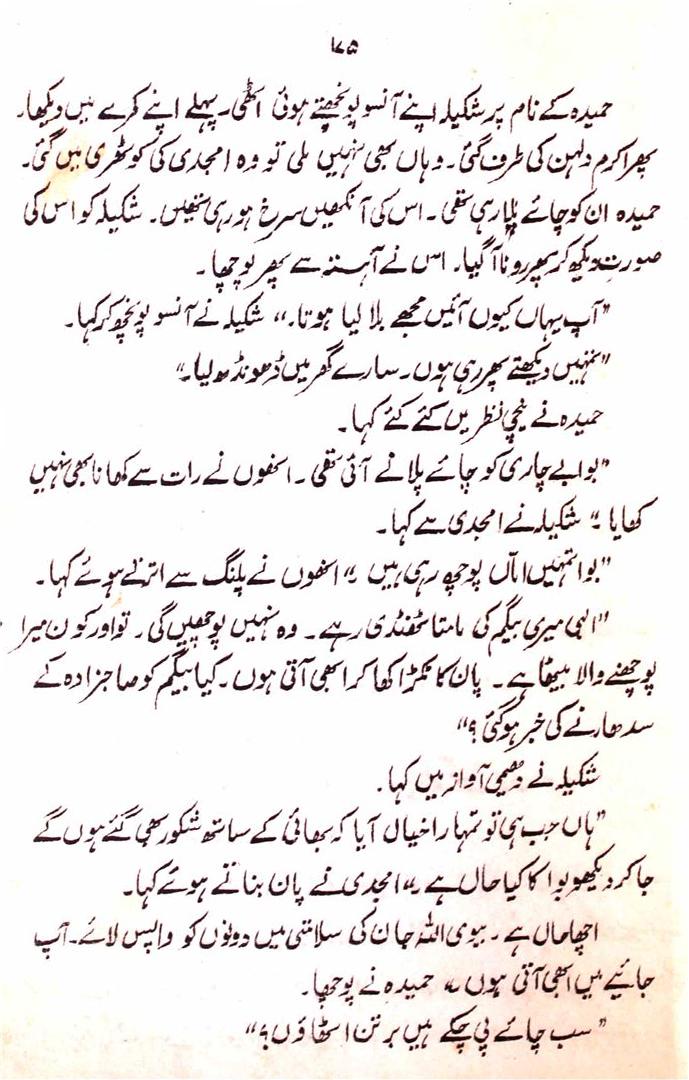 ۱۷۵
حمیدہ کے نام پر شکیلہ اپنے آنسو پونچھتے ہوئی اٹھی۔ پہلے اپنے کمرے میں دیکھا۔
پھر اکرم دلہن کی طرف گئی۔ وہاں بھی نہیں ملی تو وہ امجدی کی کوٹھری میں گئی۔
حمیدہ ان کو چائے پلا رہی تھی۔ اس کی آنکھیں سرخ ہو رہی تھیں۔ شکیلہ کو اس کی
صورت دیکھ کر پھر رونا آ گیا۔ اس نے آہستہ سے پھر پوچھا۔
"آپ یہاں کیوں آئیں مجھے بلا لیا ہوتا۔" شکیلہ نے آنسو پونچھ کر کہا۔
"تمہیں دیکھتے پھر رہی ہوں۔ سارے گھر میں ڈھونڈھ لیا۔"
حمیدہ نے نیچی نظریں کئے کئے کہا۔
"بوا بے چاری کو چائے پلانے آئی تھی۔ انھوں نے رات سے کھانا بھی نہیں
کھایا۔" شکیلہ نے امجدی سے کہا۔
"بوا تمہیں اماں پوچھ رہی ہیں۔" انھوں نے پلنگ سے اترتے ہوئے کہا۔
"الہی میری بیگم کی مامتا ٹھنڈی رہے۔ وہ نہیں پوچھیں گی۔ تو اور کون میرا
پوچھنے والا بیٹھا ہے۔ پان کا ٹکڑا کھا کر ابھی آتی ہوں۔ کیا بیگم کو صاحبزادہ کے
سدھارنے کی خبر ہو گئی؟"
شکیلہ نے دھیمی آواز میں کہا۔
"ہاں جب ہی تو تمہارا خیال آیا کہ بھائی کے ساتھ شکور بھی گئے ہوں گے
جا کر دیکھو بوا کا کیا حال ہے۔" امجدی نے پان بناتے ہوئے کہا۔
اچھا حال ہے۔ بیوی اللہ جان کی سلامتی میں دونوں کو واپس لائے۔ آپ
جائیے میں ابھی آتی ہوں۔" حمیدہ نے پوچھا۔
"سب چائے پی چکے ہیں برتن اٹھاؤں؟"